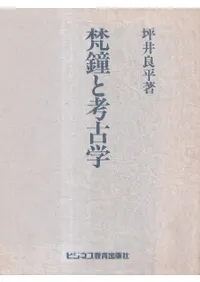 坪井良平著
梵鐘と考古学
ビジネス教育出版社